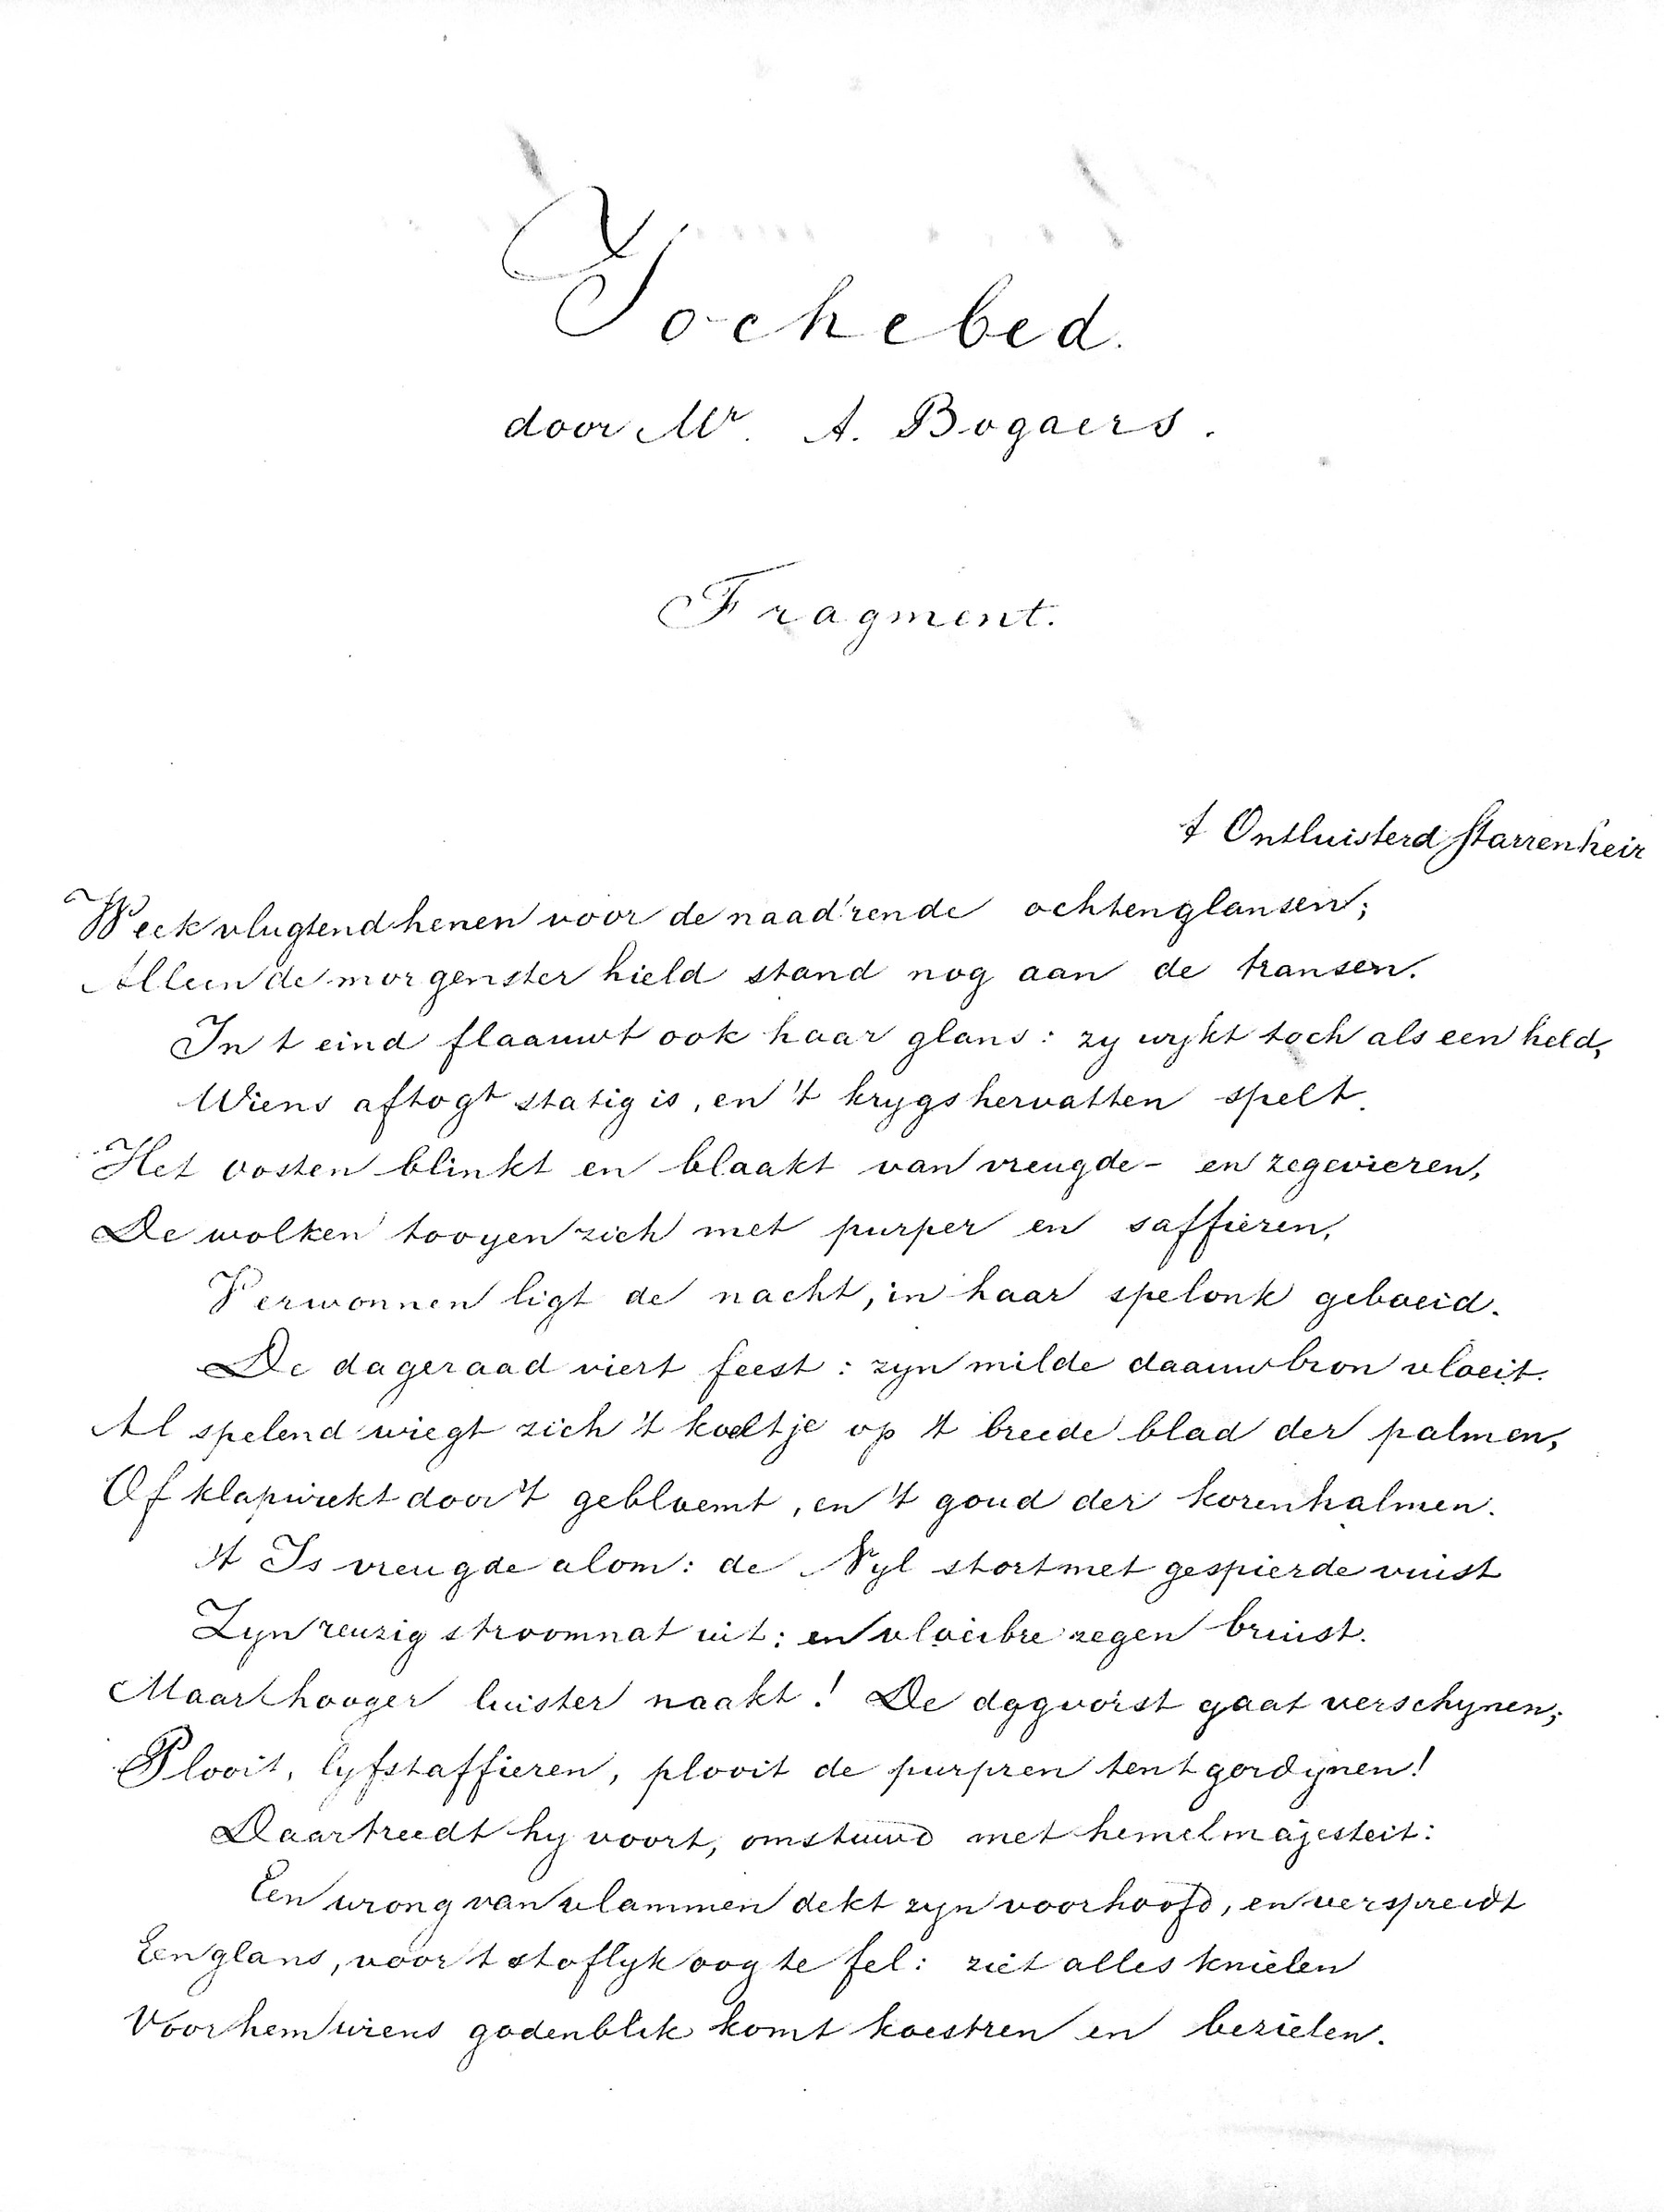 Jochebed.
door Mr. A. Bogaers.
Fragment.
't Ontluisterd starrenheir
Week vlugtend henen voor de naad'rende ochtenglansen;
Alleen de morgenster hield stand nog aan de transen.
In t eind flaauwt ook haar glans: zy wykt toch als een held,
Wiens aftogt statig is, en 't krygshervatten spelt.
Het oosten blinkt en blaakt van vreugde- en zegevieren,
De wolken tooyen zich met purper en saffieren,
Verwonnen ligt de nacht, in haar spelonk geboeid.
De dageraad viert feest: zyn milde daauwbron vloeit.
Al spelend wiegt zich 't koeltje op 't breede blad der palmen,
Of klapwiekt door 't gebloemt, en 't goud der korenhalmen.
't Is vreugde alom: de Nyl stort met gespierde vuist
Zyn reuzig stroomnat uit: en vloeibre zegen bruist.
Maar hooger luister naakt! De dagvorst gaat verschynen;
Plooit, lyfstaffieren, plooit de purpren tentgordynen!
Daar treedt hy voort, omstuwd met hemelmajesteit:
Een wrong van vlammen dekt zyn voorhoofd, en verspreidt
Een glans, voor t stoflyk oog te fel: ziet alles knielen
Voor hem wiens godenblik komt koestren en bezielen.